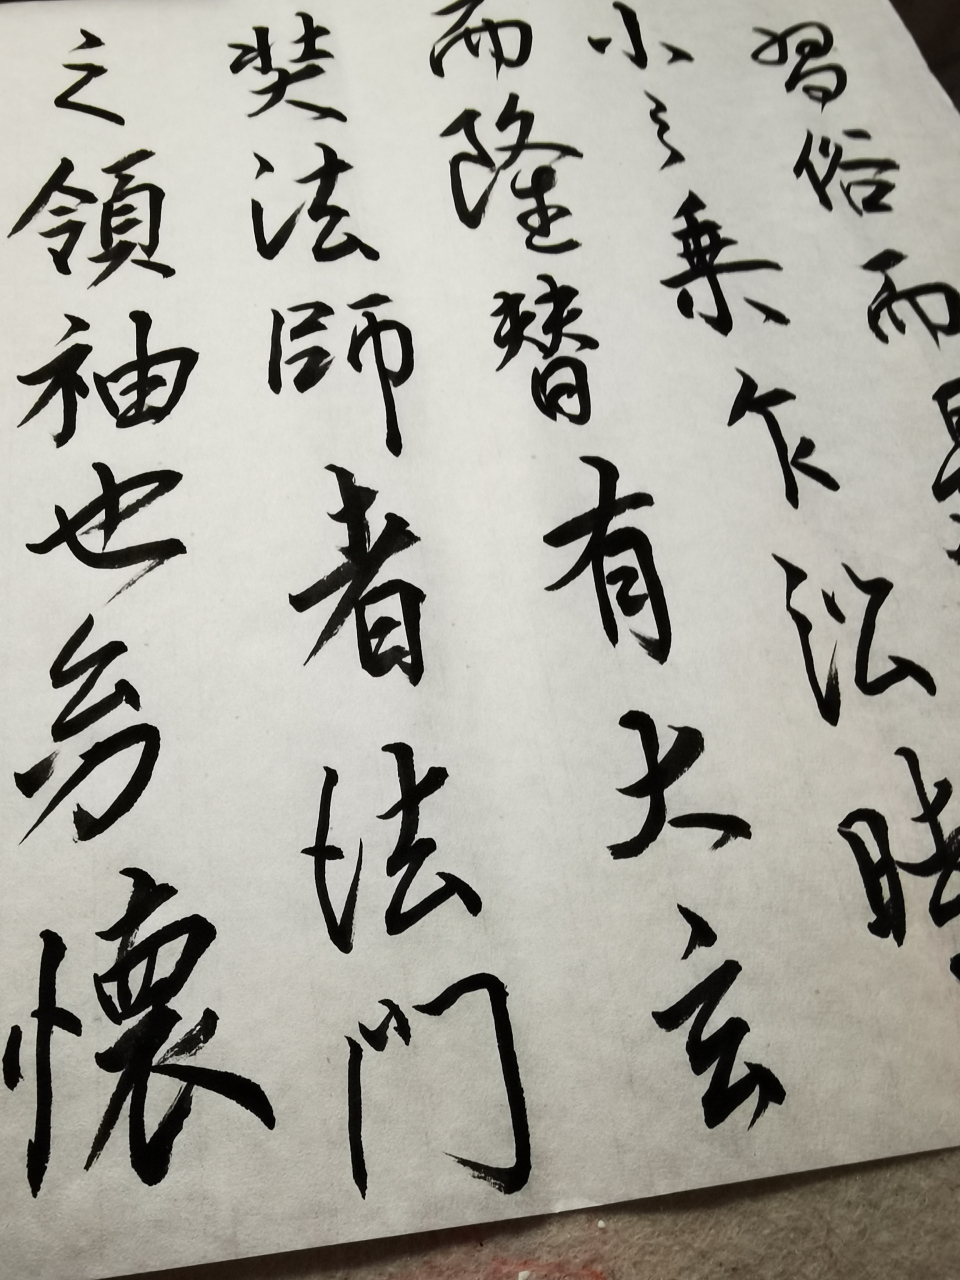 習俗而是
小之乘乍沿時
而隆替有大玄
奘法師者法門
之領袖也幼懷